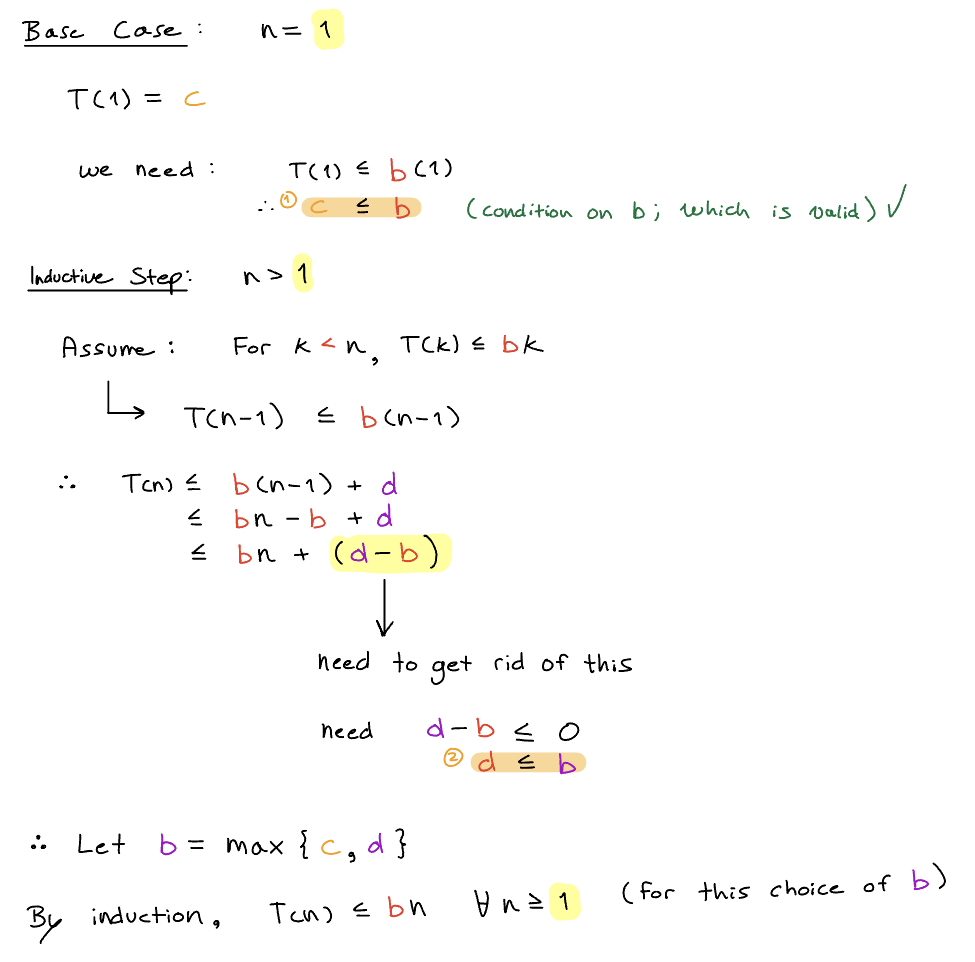 Base Case : n = 1
T(1) = c
we need : T(1) ≤ b(1)
∴ ① c ≤ b (condition on b; which is valid) ✓
Inductive Step: n > 1
Assume : For k < n, T(k) ≤ bk
↳ T(n-1) ≤ b(n-1)
∴ T(n) ≤ b(n-1) + d
≤ bn - b + d
≤ bn + (d - b)
need to get rid of this
need d - b ≤ 0
② d ≤ b
∴ Let b = max {c, d}
By induction, T(n) ≤ bn ∀ n ≥ 1 (for this choice of b)